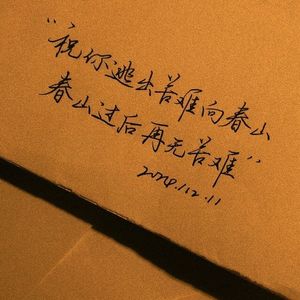 “祝你逃出苦难向春山
春山过后再无苦难”
2024.12.11